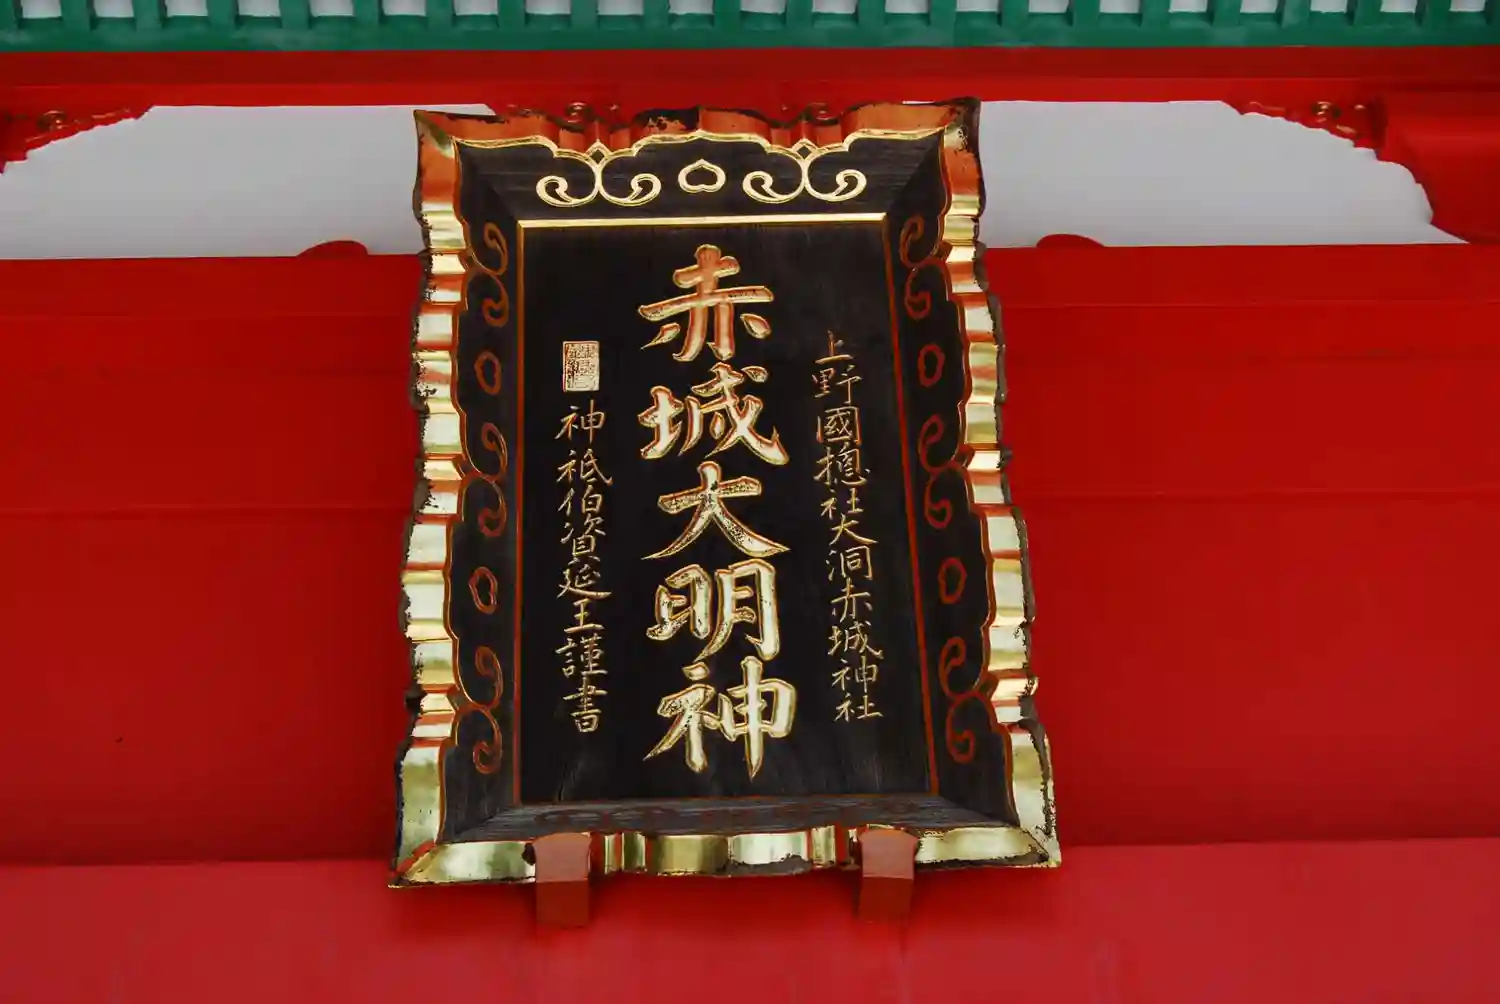 上野國揔社大洞赤城神社
赤城大明神
神祇伯資延王謹書